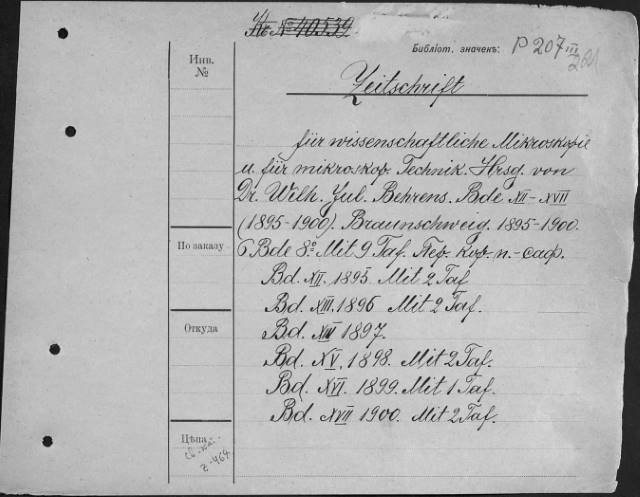 № 40539.
Библіот. значекъ: P 207 III
Инв.
№
Zeitschrift
für wissenschaftliche Mikroskopie
u. für mikroskop. Technik. Hrsg. von
Dr. Wilh. Jul. Behrens. Bde XII–XVII
(1895-1900). Braunschweig. 1895-1900.
По заказу
6 Bde 8° Mit 9 Taf. Пер. кор. п.-саф.
Bd. XII. 1895 Mit 2 Taf
Bd. XIII. 1896 Mit 2 Taf.
Откуда
Bd. 1897.
Bd. XV, 1898. Mit 2 Taf.
Bd. XVI. 1899. Mit 1 Taf.
Bd. XVII 1900. Mit 2 Taf.
Цѣна: